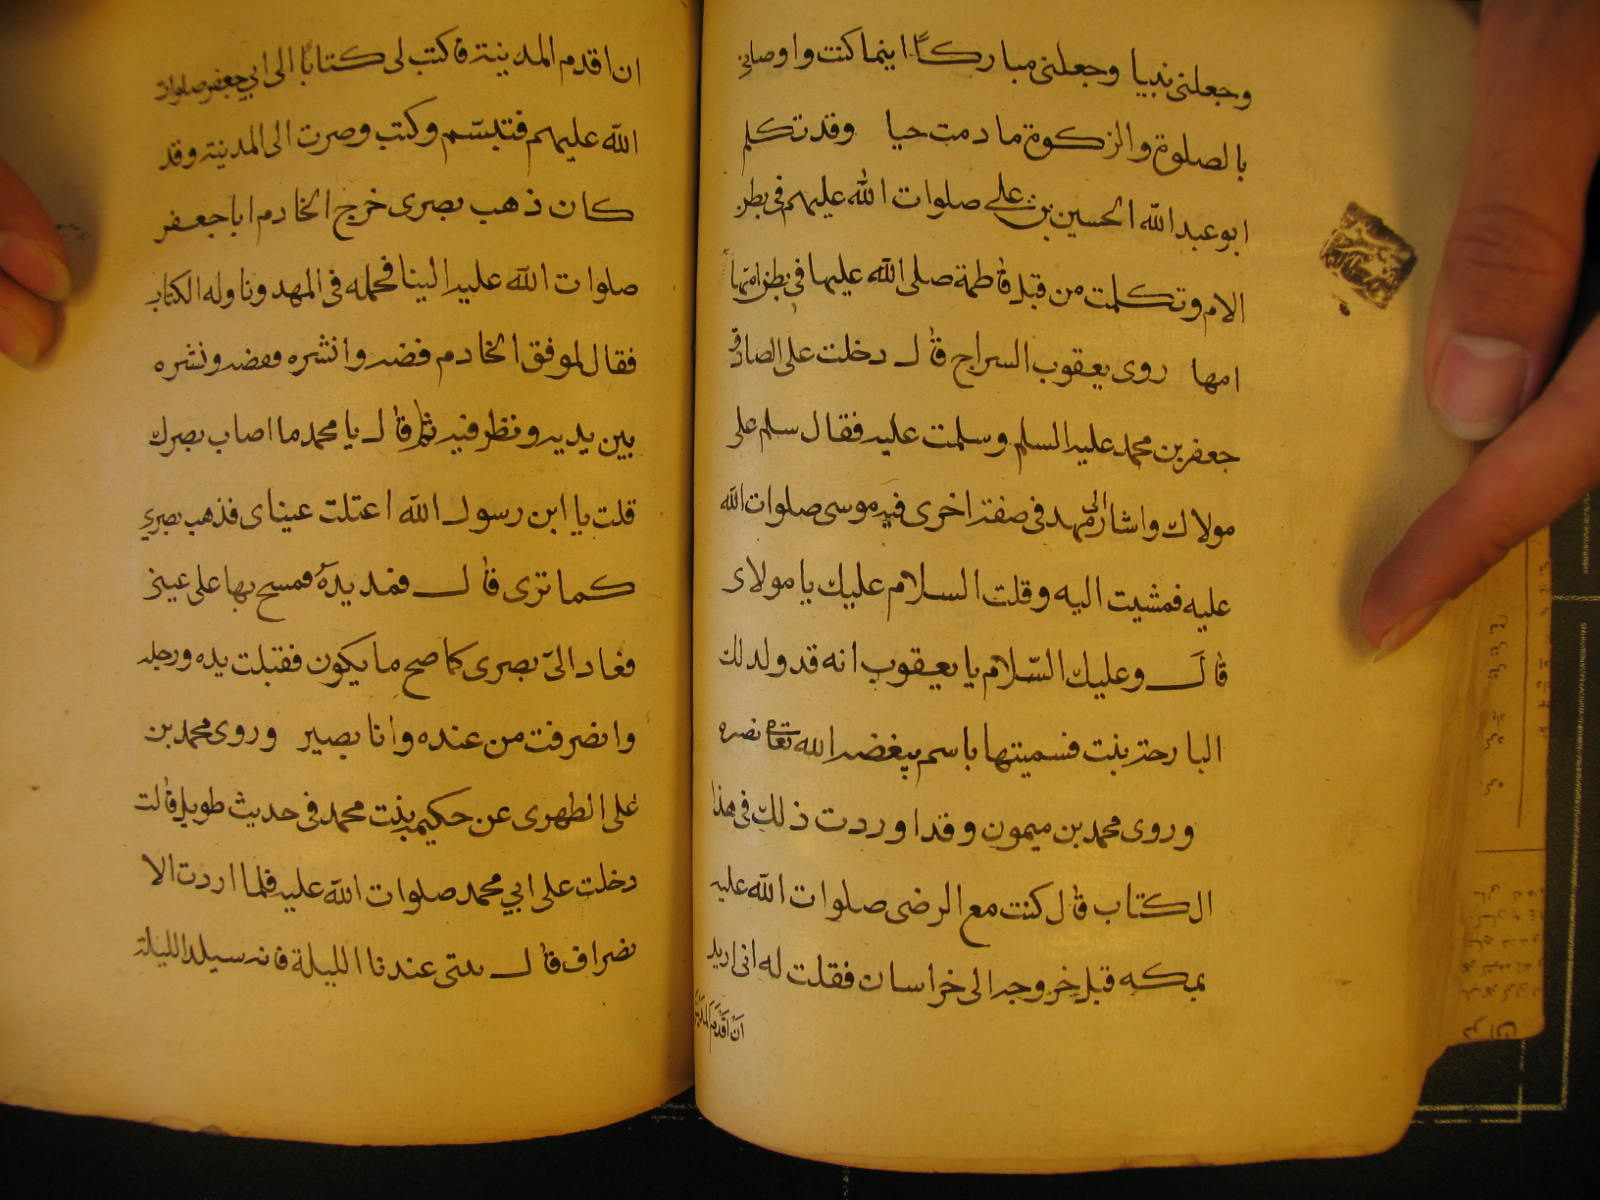 وجعلنى نبيا وجعلنى مباركا اينما كنت واوصانى
بالصلوة والزكوة ما دمت حيا وقد تكلم
ابو عبد الله الحسين بن على صلوات الله عليهم فى بطن
الام وتكلمت من قبل فاطمة صلى الله عليها فى بطن امها
امها روى يعقوب السراج قال دخلت على الصادق
جعفر بن محمد عليه السلم وسلمت عليه فقال سلم على
مولاك واشار الى مهد فى صفة اخرى فيه موسى صلوات الله
عليه فمشيت اليه وقلت السلام عليك يا مولاى
قال وعليك السلام يا يعقوب انه قد ولد لك
البارحة بنت فسميتها باسم يبغضه الله تعالى
وروى محمد بن ميمون وقد اوردت ذلك فى هذا
الكتاب قال كنت مع الرضى صلوات الله عليه
بمكه قبل خروجه الى خراسان فقلت له انى اريد
ان اقدم المدينة
ان اقدم المدينة فاكتب لى كتابا الى ابي جعفر صلوات
الله عليهم فتبسم وكتب وصرت الى المدينة وقد
كان ذهب بصرى خرج الخادم ابا جعفر
صلوات الله عليه الينا فحمله فى المهد وناوله الكتاب
فقال لموفق الخادم فضه وانشره ففضه ونشره
بين يديه ونظر فيه ثم قال يا محمد ما اصاب بصرك
قلت يا ابن رسول الله اعتلت عيناى فذهب بصري
كما ترى قال فمد يده فمسح بها على عينى
فعاد الى بصرى كاصح ما يكون فقبلت يده ورجله
وانصرفت من عنده وانا بصير وروى محمد بن
على الطهرى عن حكيمه بنت محمد فى حديث طويل قالت
دخلت على ابي محمد صلوات الله عليه فلما اردت الا
نصراف قال بيتى عندنا الليلة فانه سيلد الليلة